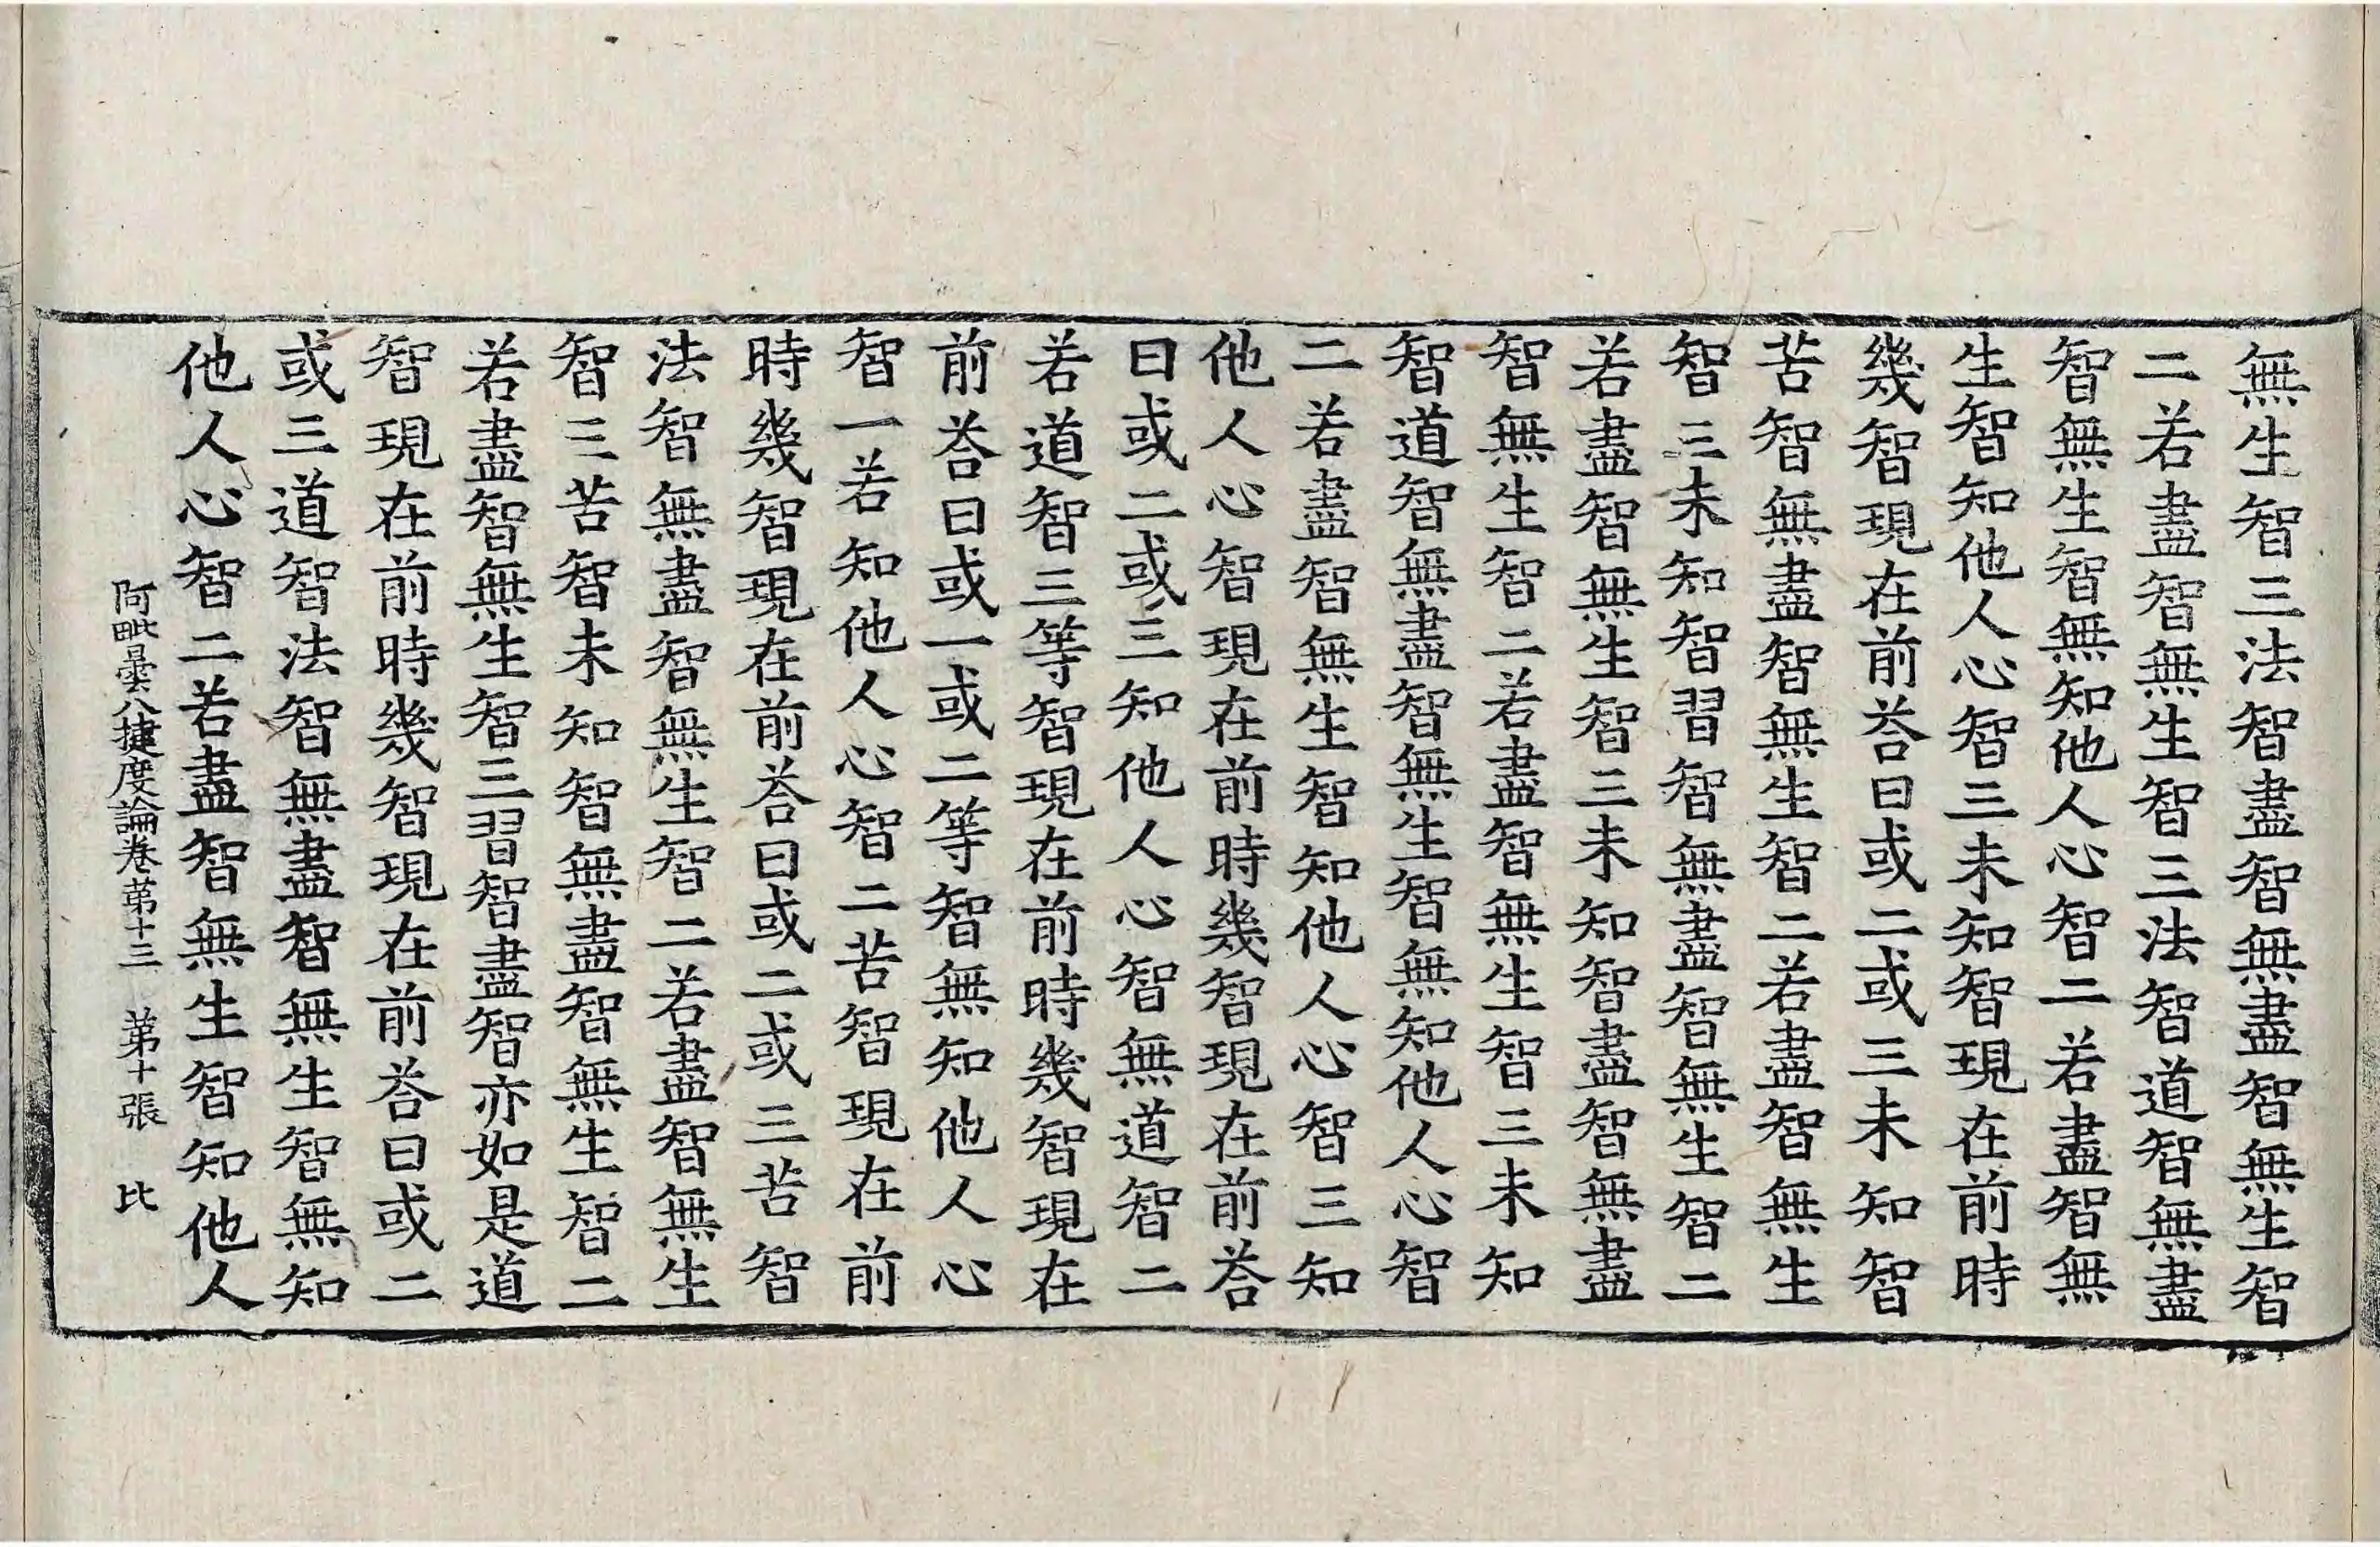 無生智三法智盡智無盡智無生智
二若盡智無生智三法智道智無盡
智無生智無知他人心智二若盡智無
生智知他人心智三未知智現在前時
幾智現在前荅曰或二或三未知智
苦智無盡智無生智二若盡智無生
智三未知智習智無盡智無生智二
若盡智無生智三未知智盡智無盡
智無生智二若盡智無生智三未知
智道智無盡智無生智無知他人心智
二若盡智無生智知他人心智三知
他人心智現在前時幾智現在前荅
曰或二或三知他人心智無道智二
若道智三等智現在前時幾智現在
前荅曰或一或二等智無知他人心
智一若知他人心智二苦智現在前
時幾智現在前荅曰或二或三苦智
法智無盡智無生智二若盡智無生
智三苦智未知智無盡智無生智二
若盡智無生智三習智盡智亦如是道
智現在前時幾智現在前荅曰或二
或三道智法智無盡智無生智無知
他人心智二若盡智無生智知他人
阿毗曇八揵度論卷苐十三　苐十張　比